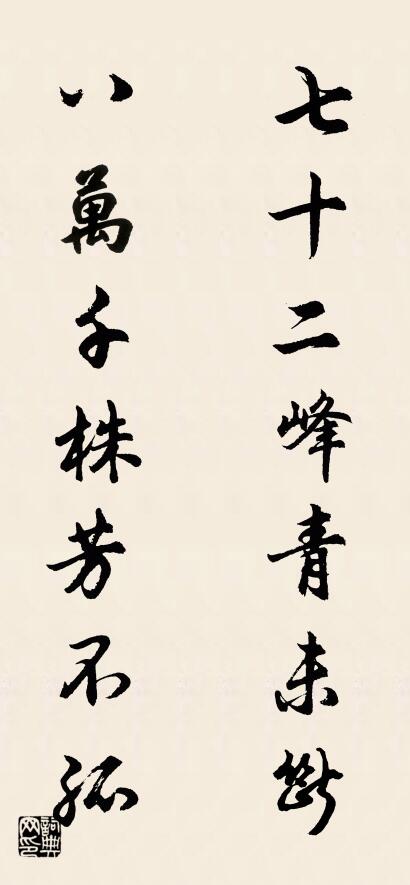 七十二峰青未斷
八萬千株芳不孤
詞典網印